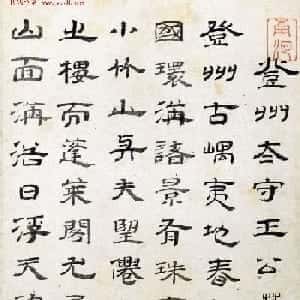 登州太守王公
登州古嵎夷地春
國環諸景有珠
小竹山與夫望僊
之樓而蓬萊閣尤
山面浩日浮天